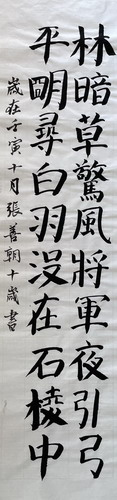 林暗草驚風將軍夜引弓
平明尋白羽没在石棱中
歲在壬寅十月張善朝十歲書